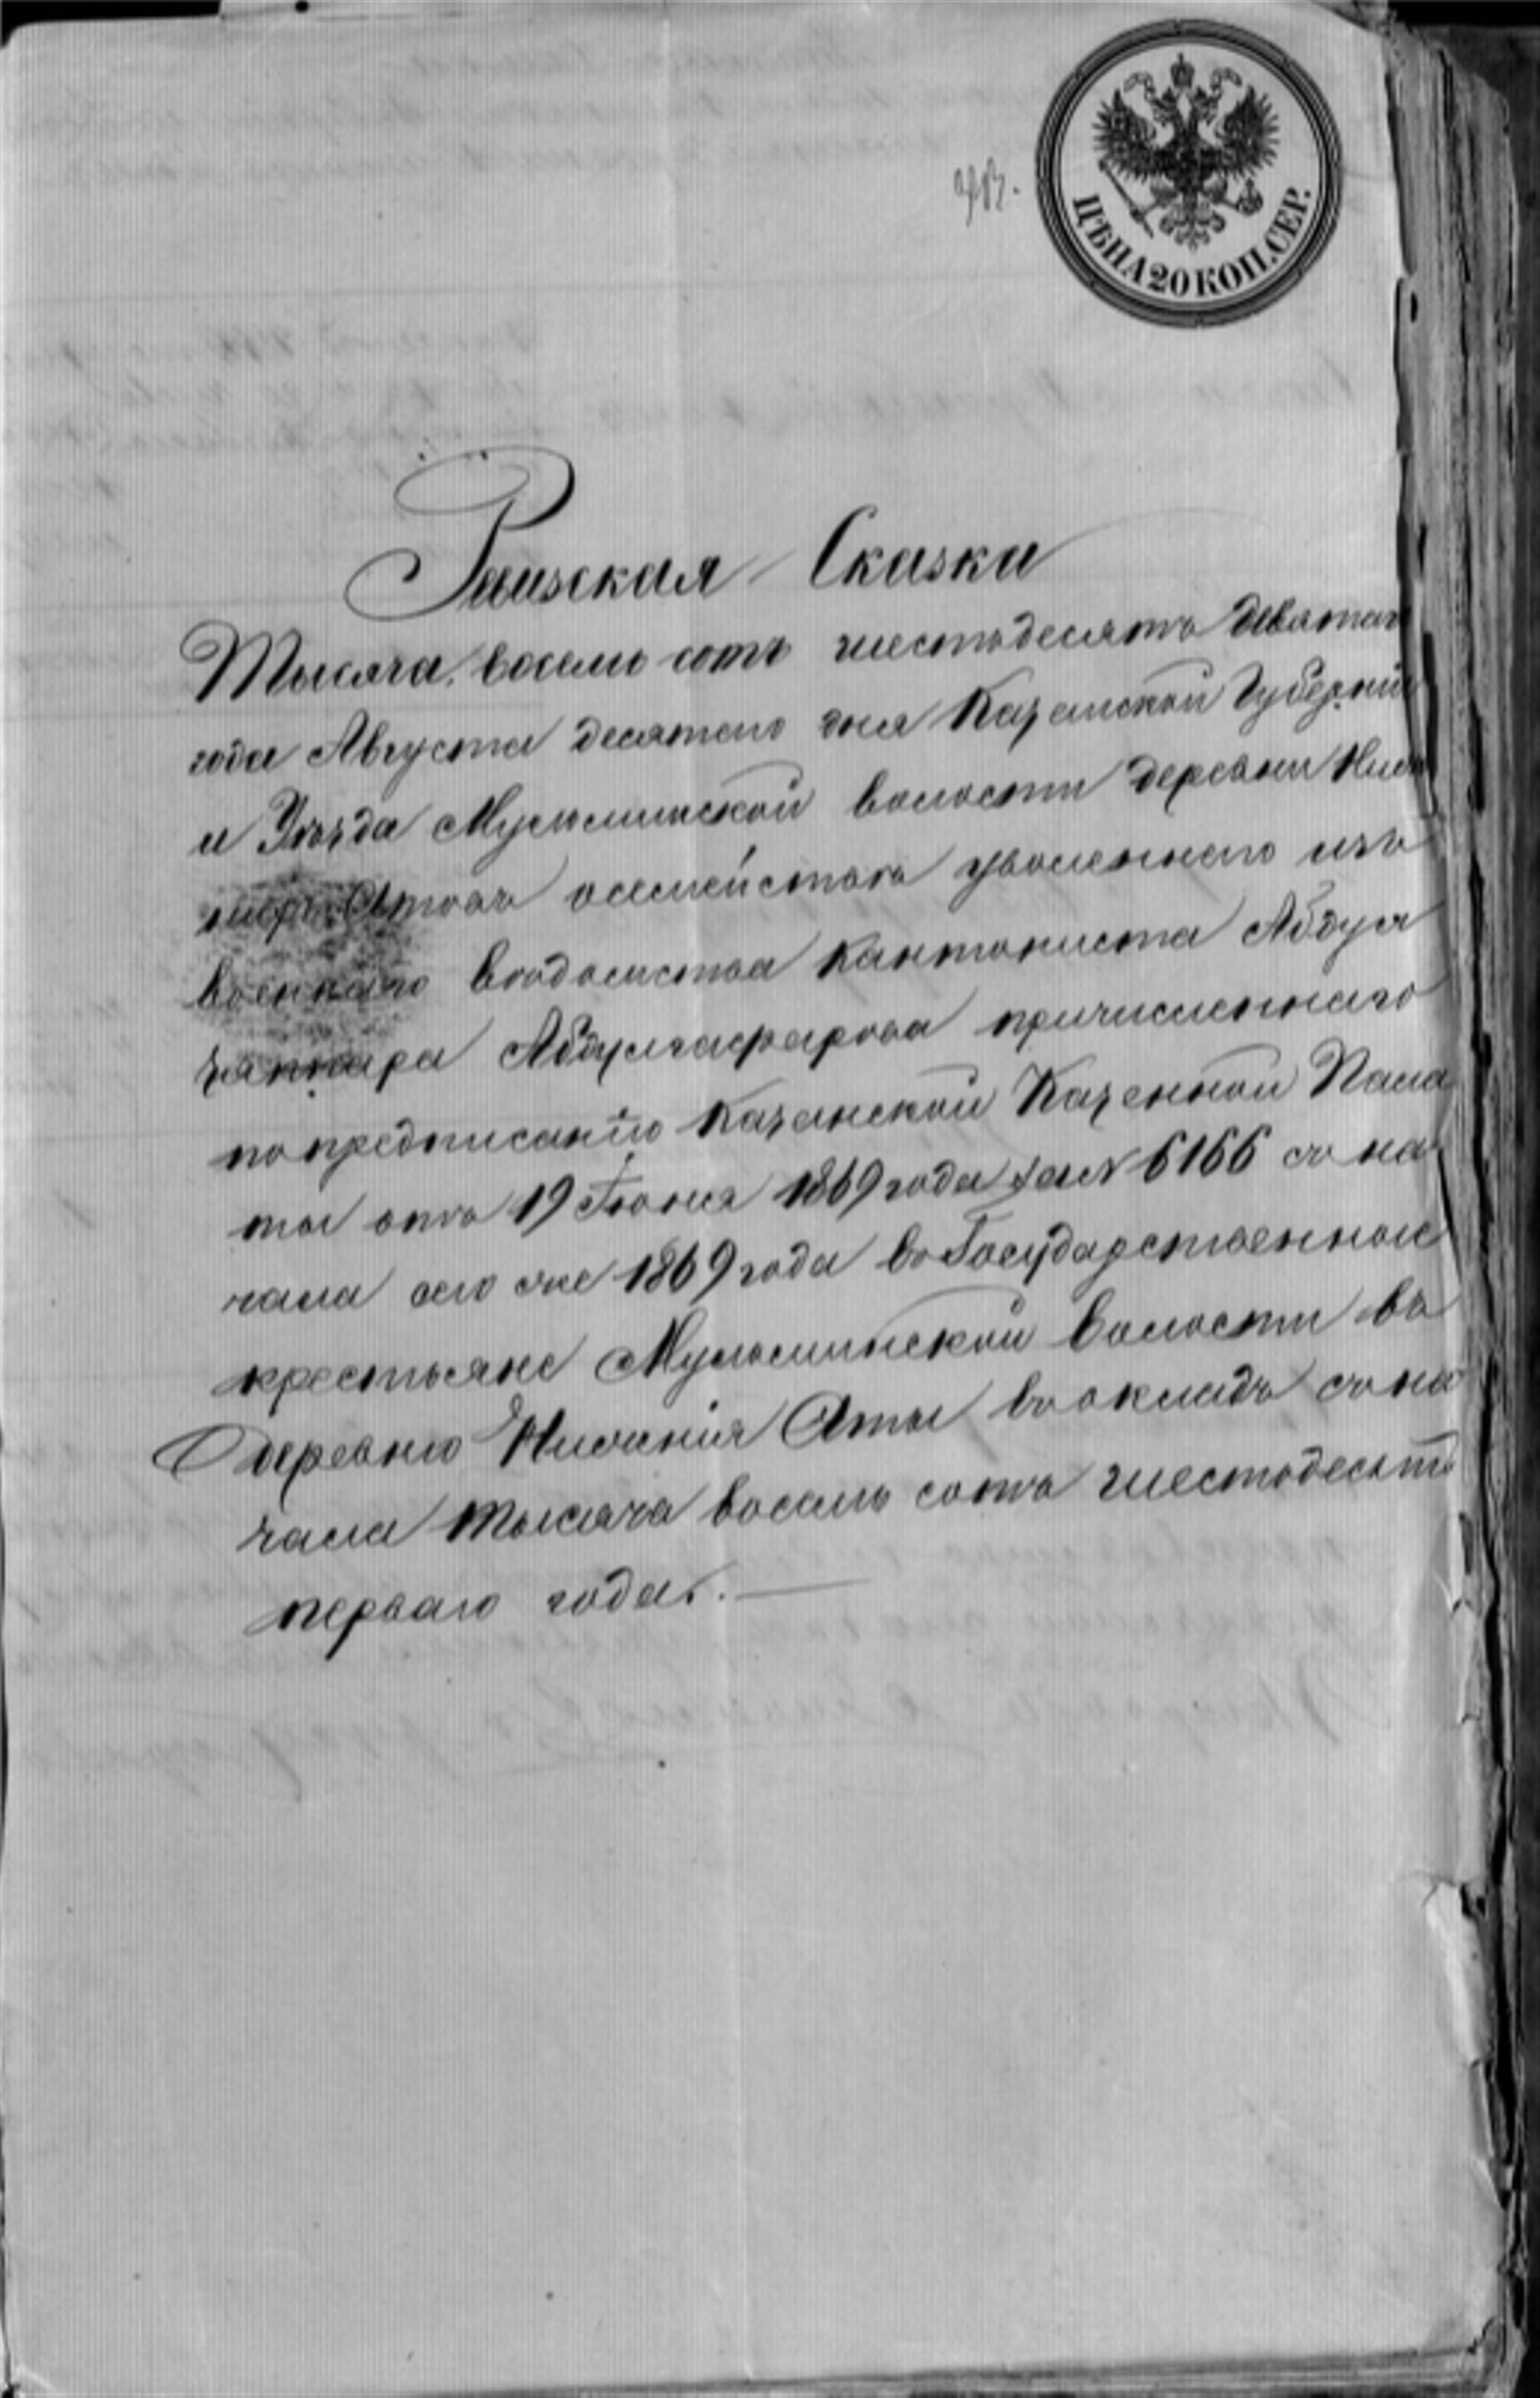 ЦѢНА 20 КОП. СЕР.
Ревизская Сказка
Тысяча восемь сотъ шестьдесятъ девятаго
года Августа десятаго дня Казанской Губерніи
и Уѣзда Мульминской волости деревни
осемействѣ уволеннаго изъ
военнаго вѣдомства кантониста Абдул
Абдулгафарова причисленнаго
по предписанію Казанской Казенной Пала
ты отъ 19 Іюня 1869 года за № 6166 съ на
чала сего же 1869 года въ Государственные
крестьяне Мульминской волости въ
деревню Нижнія Аты въ окладъ съ на
чала тысяча восемь сотъ шестьдесятъ
перваго года. —